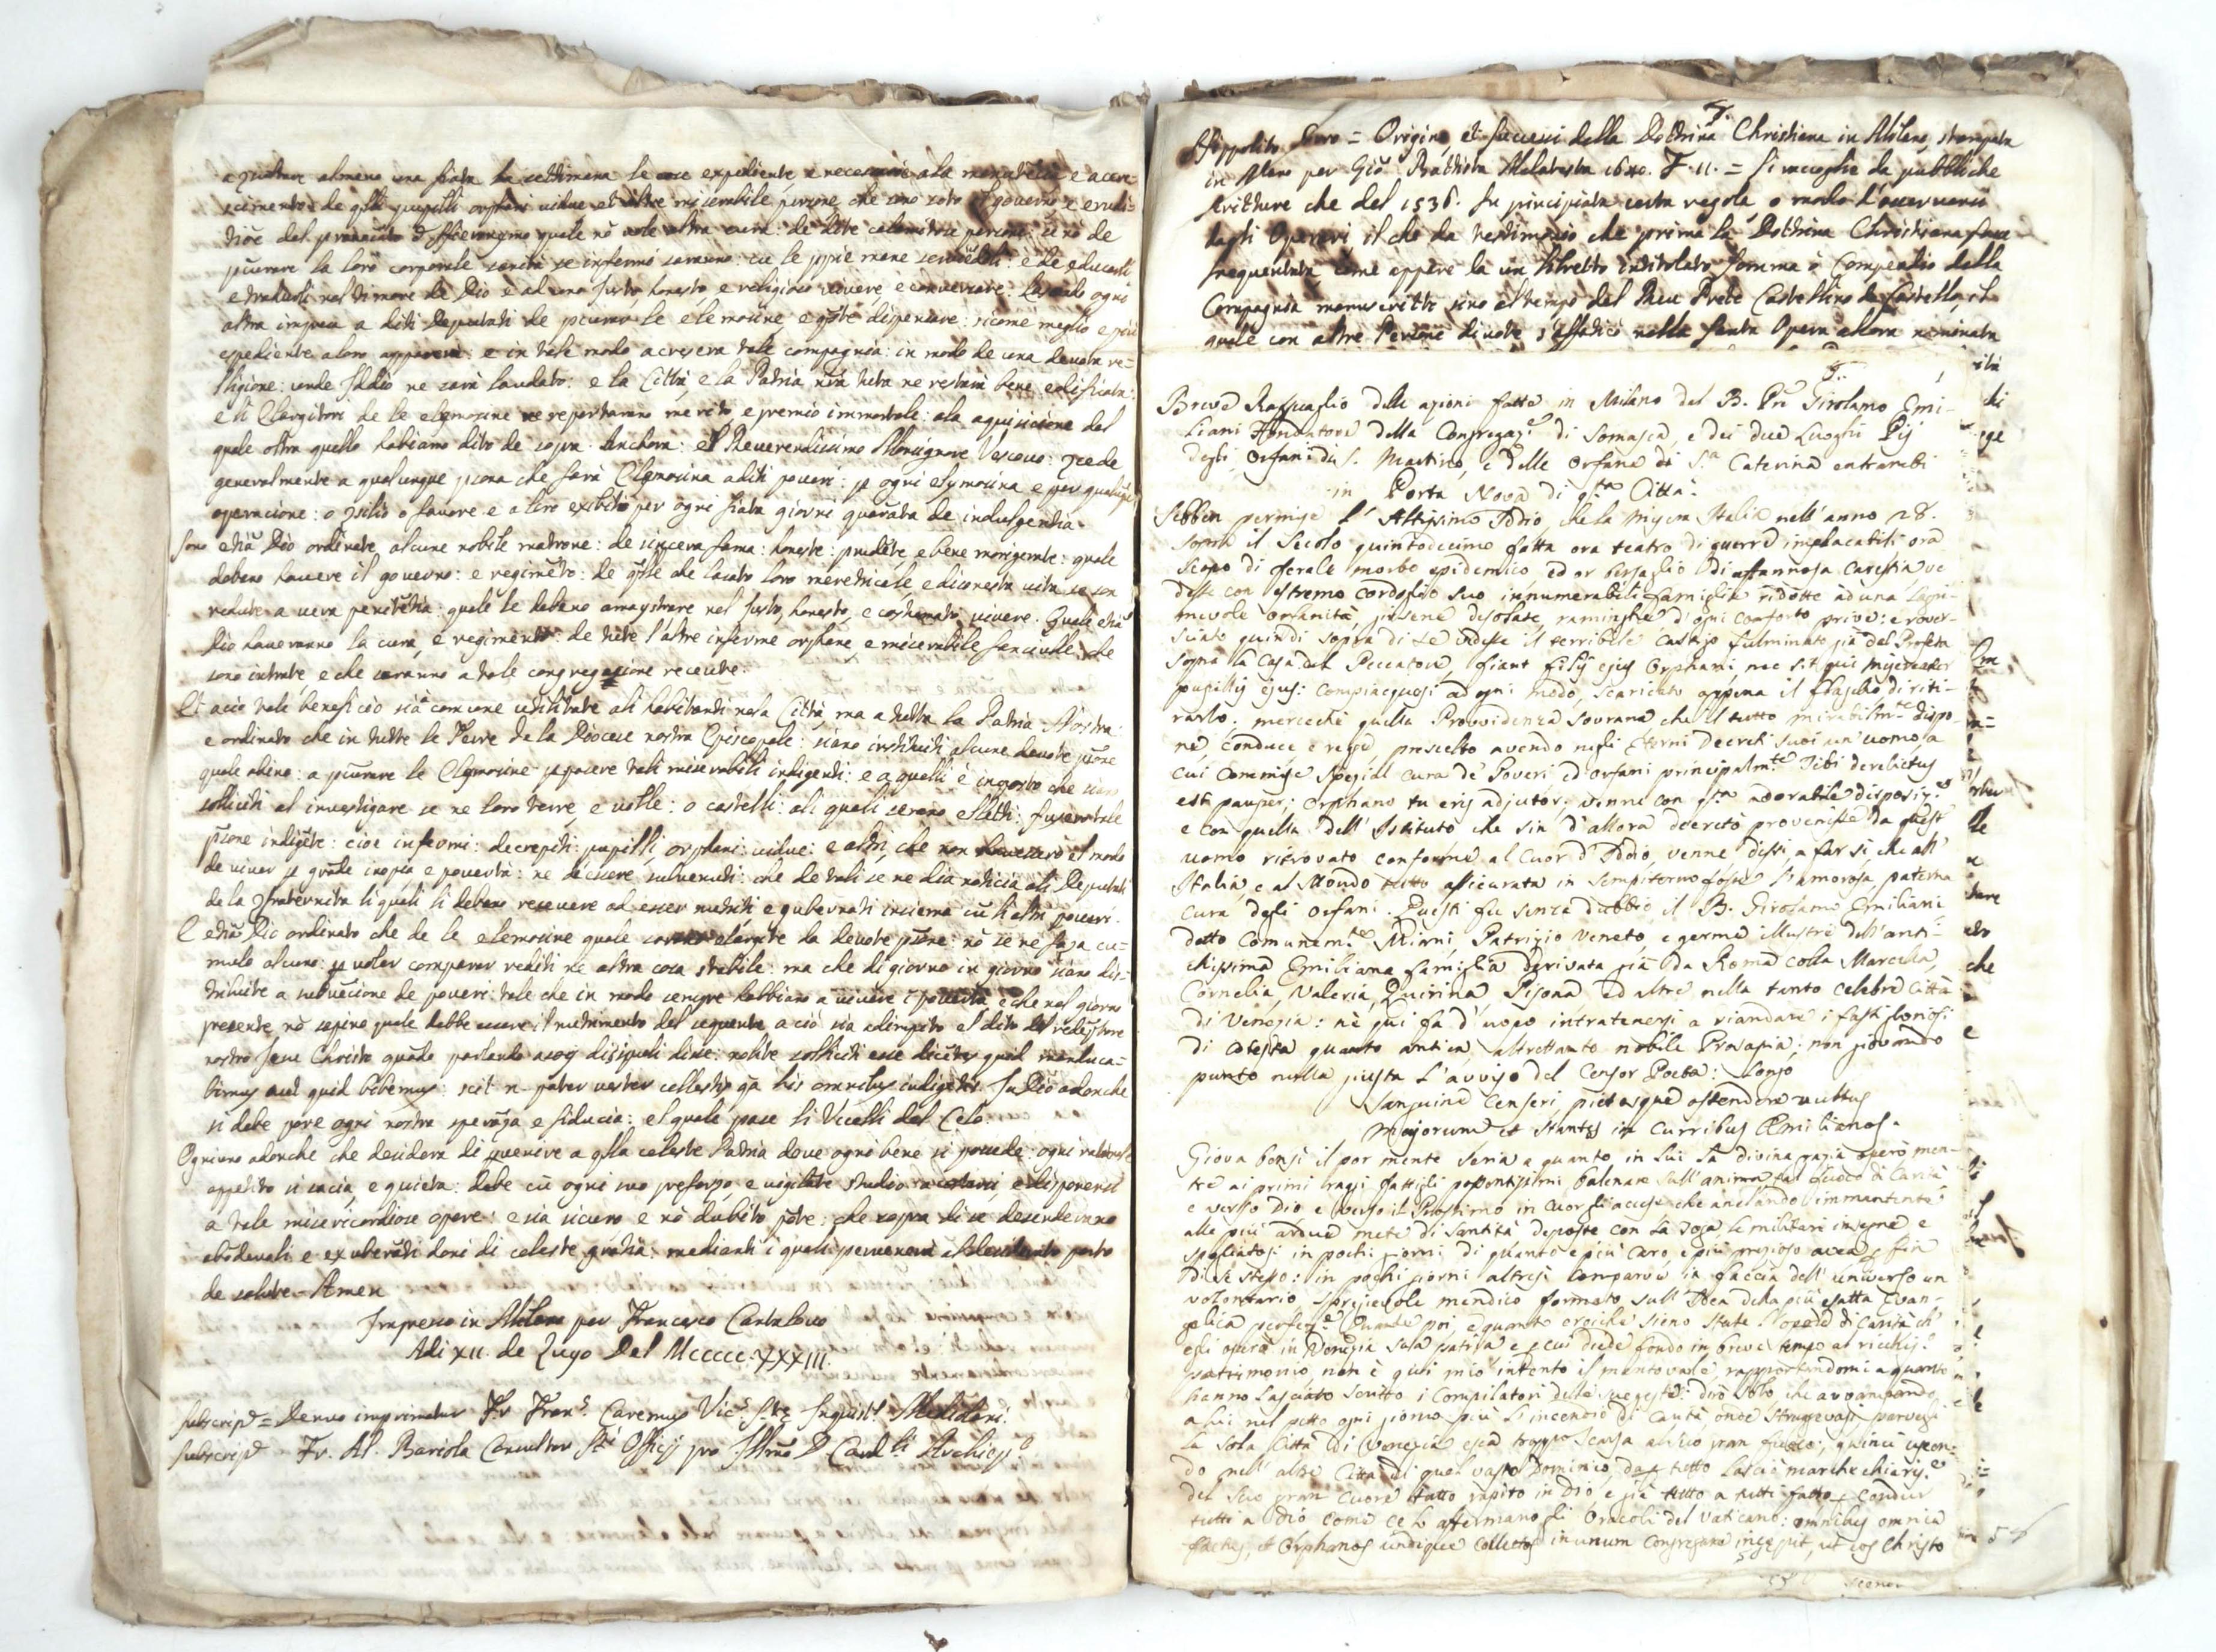 a zustare almeno una fiata la settimana le cose expediente e necessarie ala e acres-
cimento de q̃lli pupilli orphani vidue et altre miserabile persone che sono soto el governo e erudi-
tiõe del Hieronymo quale nõ vole altra cura de dite calamitose persone: se nõ de
p̃curare la loro corporale sanità se infermi saranno: cũ le pp̃ie mane servẽdoli: e de educarli
e tradurli nel timore de Dio e ad uno justo, honesto, e religioso vivere, e conversare. Lasando ogni
altra impresa a diti Deputati de p̃curar le elemosine, e q̃lle dispensare: sicome meglio e più
expediente a loro apparerà: e in tale modo acrescera tale compagnia: in modo de una devota re-
ligione: unde Iddio ne sarà laudato: e la Città, e la Patria nr̃a tuta ne restarà bene edificata:
e li Elargitori de le elemosine ne reportarano merito, e premio immortale: ala aquisicione del
quale oltra quello habiamo dito de sopra. Anchora: el Reverendissimo Monsignore Vescovo: c̃cede
generalmente a qualunque p̃sona che farà Elemosina a diti poveri: p ogni elymosina e per qualũq̃
operacione: o c̃silio o favore e altro exibito per ogni fiata giorni quarãta de indulgentia.
Sono etiã Dio ordinate alcune nobile matrone: de sincera fama: honeste: prudẽte, e bene morigerate: quale
debeno havere il governo: e regimẽto: de q̃lle che lasato loro meretricale, e dishonesta vita se son
redute a vera penitẽtia: quale le debeno amaystrare nel justo, honesto, e costumato vivere. Quale etiã
Dio haveranno la cura, e regimento: de tute l'altre inferme orphane e miserabile fanciulle: che
sono intrate, e che saranno a tale congregazione recevute.
Et aciò tale beneficio sia comune ali habitanti nela Città, ma a tutta la Patria Nostra:
e ordinato che in tutte le Terre de la Diocese nostra Episcopale: siano instituiti alcune devote p̃sone
quale abino: a p̃curare le Elemosine p pascere tali miserabili indigenti: e a quelli è ingosto che siano
solliciti al investigare se ne loro terre, e ville: o castelli: ali quali serano eletti: fuseno tale
p̃sone indigẽte: cioe infermi: decrepiti: pupilli, orphani: vidue: e altri, che non havessero el modo
de viver p grãde inopia e povertà: ne de essere subvenuti: che de tali se ne dia noticia ali Deputati
de la Fraternita li quali li debano recevere ad esser nutriti e gubernati insiema cũ li altri poveri.
E etiã Dio ordinato che de le elemosine quale sarano elargite da devote p̃sone: nõ se ne faza cu-
mulo alcuno: p voler comperar rediti ne altra cosa stabile: ma che di giorno in giorno siano dis-
tribuite a subvẽcione de poveri: tale che in modo sempre habbiano a vivere ĩ povertà e che nel giorno
presente nõ sapino quale debbe essere il nutrimento del sequente, a ciò sia adimpito el dito del redẽptore
nostro Jesu Christo quãdo parlando a soy disipuli dise: nolite solliciti esse dicẽtes quid manduca-
bimus aut quid bibemus: scit n. pater vester cellestis q̃a his omnibus indigetis. In Dio adonche
si debe pore ogni nostra sperãza e fiducia: el quale pase li Ucelli del Celo.
Ogniuno adonche che desidera di p̃venire a q̃lla celeste Patria dove ogni bene si possede: ogni
appetito si sacia, e quieta: debe cũ ogni suo p̃sforzo, e vigilãte studio acostarsi, e disponersi
a tale misericordiose opere: e sia sicuro e nõ dubito põto: che sopra di se descenderano
abõdevoli e exuberãti doni di celeste gratia: mediante i quali pervenerà al desiderato porto
de salute. Amen
Impresso in Milano per Francesco Cantalovo
Adi XII. de Zugo Del MCCCCC.XXXIII.
Subscript = Denuo imprimatur Fr. Franc. Caremus Vic. S.te Inquisit. Mediolani.
Subscript Fr. Al. Bariola Consultor S.ti Officij pro Illmo D. Card.li Archiep.o
F.
Hippolito Porro = Origine, et successi della Dottrina Christiana in Milano, stampata
in Milano per Giõ Battista Malatesta 1640. F. 11. = Si raccoglie da pubbliche
scritture che del 1536. fu principiata certa regola, o modo d'osservarsi
dagli Operari il che da testimonio che prima la Dottrina Christiana fusse
frequentata, come appare la un libretto intitolato Somma o Compendio della
Compagnia manuscritto sino al tempo del Rev. Prete Castellino da Castello, il
quale con altre Persone divote s'affaticò nella santa Opera allora nominata
F.
Breve Ragguaglio delle azioni fatte in Milano dal B. Pñ Girolamo Emi-
liani Fondatore della Congregaz.e di Somasca, e dei due Luoghi Pij
degli Orfani di S. Martino, e delle Orfane di S.a Caterina entrambi
in Porta Nova di q.ta Città.
Sebben permise l'Altissimo Iddio, che la misera Italia nell'anno 28.
sopra il Secolo quintodecimo fatta ora teatro di guerre implacabili ora
scopo di ferale morbo epidemico, ed or bersaglio di affannosa carestia ve
desse con estremo cordoglio suo innumerabili famiglie ridotte ad una lagri-
mevole orfanità, girsene desolate, raminghe d'ogni conforto prive: e rove-
sciato quindi sopra di se vedesse il terribile castigo fulminato già dal Profeta
sopra la Casa del Peccatore fiant filij ejus Orphani, nec sit qui misereatur
pupillis ejus: compiacquesi ad ogni modo, scaricato appena il flagello di riti-
rarlo. mercechè quella Provvidenza Sovrana che il tutto mirabilm.te dispo-
ne, conduce e regge, prescelto avendo negli Eterni Decreti suoi un'uomo, a
cui commise spezial cura de' Poveri ed orfani principalm.te Tibi derelictus
est pauper; orphano tu eris adjutor, venne con q.ta adorabile disposiz.e
e con quella dell'Istituto che sin d'allora decretò provenisse da quest'
uomo ritrovato conforme al cuor d'Iddio, venne dissi, a far sì, che all'
Italia, e al Mondo tutto assicurata in sempiterno fosse l'amorosa paterna
cura degli Orfani. Questi fu senza dubbio il B. Girolamo Emiliani
detto Comunem.te Miani, Patrizio Veneto, e germe illustre dell'anti-
chissima Emiliana famiglia derivata già da Roma colla Marcella,
Cornelia, Valeria, Quirina, Pisona ed altre nella tanto celebre Città
di Venezia: nè qui fa d'uopo intratenersi a riandare i fasti gloriosi
di cotesta quanto antica, altrettanto nobile Prosapia; non giovando
punto nulla giusta l'avviso del Censor Poeta: Longo
Sanguine censeri, pictosque ostendere vultus
Majorum et stantes in curribus Æmilianos.
Giova bensì il por mente seria a quanto in lui la divina grazia operò men-
tre ai primi raggi fattigli balenare sull'anima, tal fuoco di Carità
e verso Dio e verso il Prossimo in cuor gli accese che anelando immantinente
alle più ardue mete di Santità deposte con la Toga, le militari insegne e
spogliatosi in pochi giorni di quanto e più caro, e più prezioso avea, e fin
di se stesso: in pochi giorni altresì comparve in faccia dell'universo un
volontario spregievole mendico formato sull'Idea della più esatta Evan-
gelica perfez.e Quante poi e quanto eroiche sieno state l'opere di Carità ch'
egli operò in Venezia sua patria e p cui diede fondo in breve tempo al ricchis.o
patrimonio, non è qui mio intento il mentovarle, rapportandomi a quanto
hanno lasciato scritto i Compilatori delle sue gesta: dirò solo, che avvampando
a lui nel petto ogni giorno più l'incendio di Carità onde struggevasi, parvegli
la sola Città di Venezia esca troppo scarsa al suo gran fuoco; quinci uscen-
do nell'altre Città di quel vasto Dominio, da p tutto lasciò marche chiaris.e
del suo gran cuore tutto rapito in Dio, e già tutto a tutti fatto p condur
tutti a Dio come ce lo affermano gli Oracoli del Vaticano: omnibus omnia
factus, et Orphanos undique collectos in unum congregare incepit, ut eos Christo